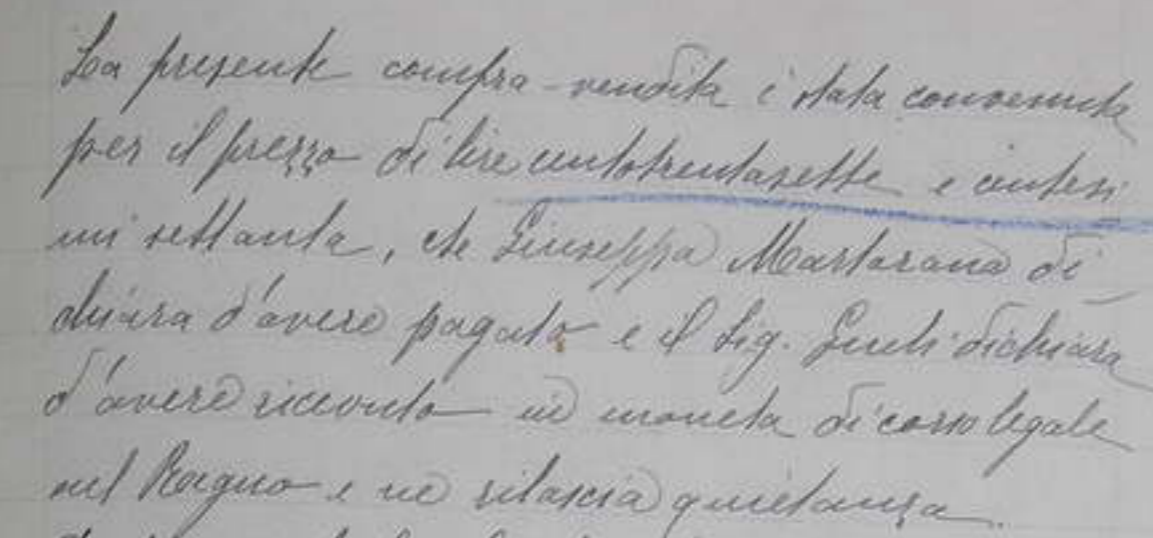 La presente compra-vendita è stata convenuta
per il prezzo di lire centotrentasette e centesi
mi settanta, che Giuseppa Martorana di
chiara d'avere pagato e il Sig. dichiara
d'avere ricevuto in moneta di corso legale
nel Regno e ne rilascia quietanza.